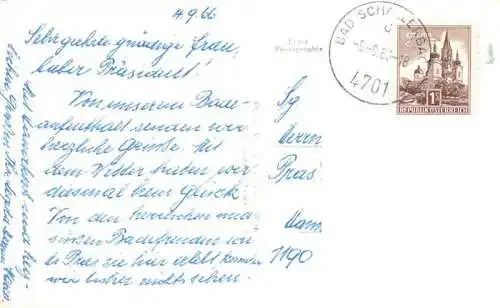 4.9.66
Sehr geehrte gnädige Frau,
lieber Präsident!
Von unserem Bade-
aufenthalt senden wir
herzliche Grüße. Mit
dem Wetter hatten wir
diesmal kein Glück
Von den herrlichen und
Badefreuden wie
sie hier erlebt
wir bisher nichts sehen.
Mit und herz-
lichen Grüßen Ihr
Echte
Photographie
BAD SCHALLERBA
-18
4701
1S
REPUBLIK ÖSTERREICH
Sg
Herrn
Präs
1190